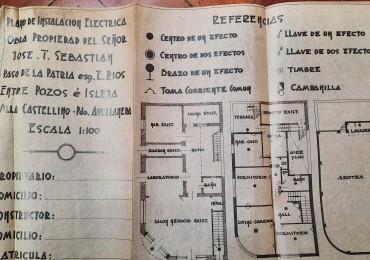 PLANO DE INSTALACION ELECTRICA
OBRA PROPIEDAD DEL SEÑOR
JOSE . T. SEBASTIAN
PASO DE LA PATRIA esq. E. RIOS
ENTRE POZOS é ISLETA
VILLA CASTELLINO - Pdo. AVELLANEDA
ESCALA 1:100
PROPIETARIO:
DOMICILIO:
CONSTRUCTOR:
DOMICILIO:
MATRICULA:
REFERENCIAS
CENTRO DE UN EFECTO
CENTRO DE DOS EFECTOS
BRAZO DE UN EFECTO
TOMA CORRIENTE COMUN
LLAVE DE UN EFECTO
LLAVE DE DOS EFECTO
TIMBRE
CAMPANILLA
HAB. EXIST.
COCINA EXIST.
ZAGUAN EXIST.
LABORATORIO
BAÑO
SALON NEGOCIO EXIST.
TERRAZA
EXIST.
DORMITORIO
AIRE
BAÑO
HALL
LIVING-COMEDOR
DORMITORIO
LAVADERO
AZOTEA